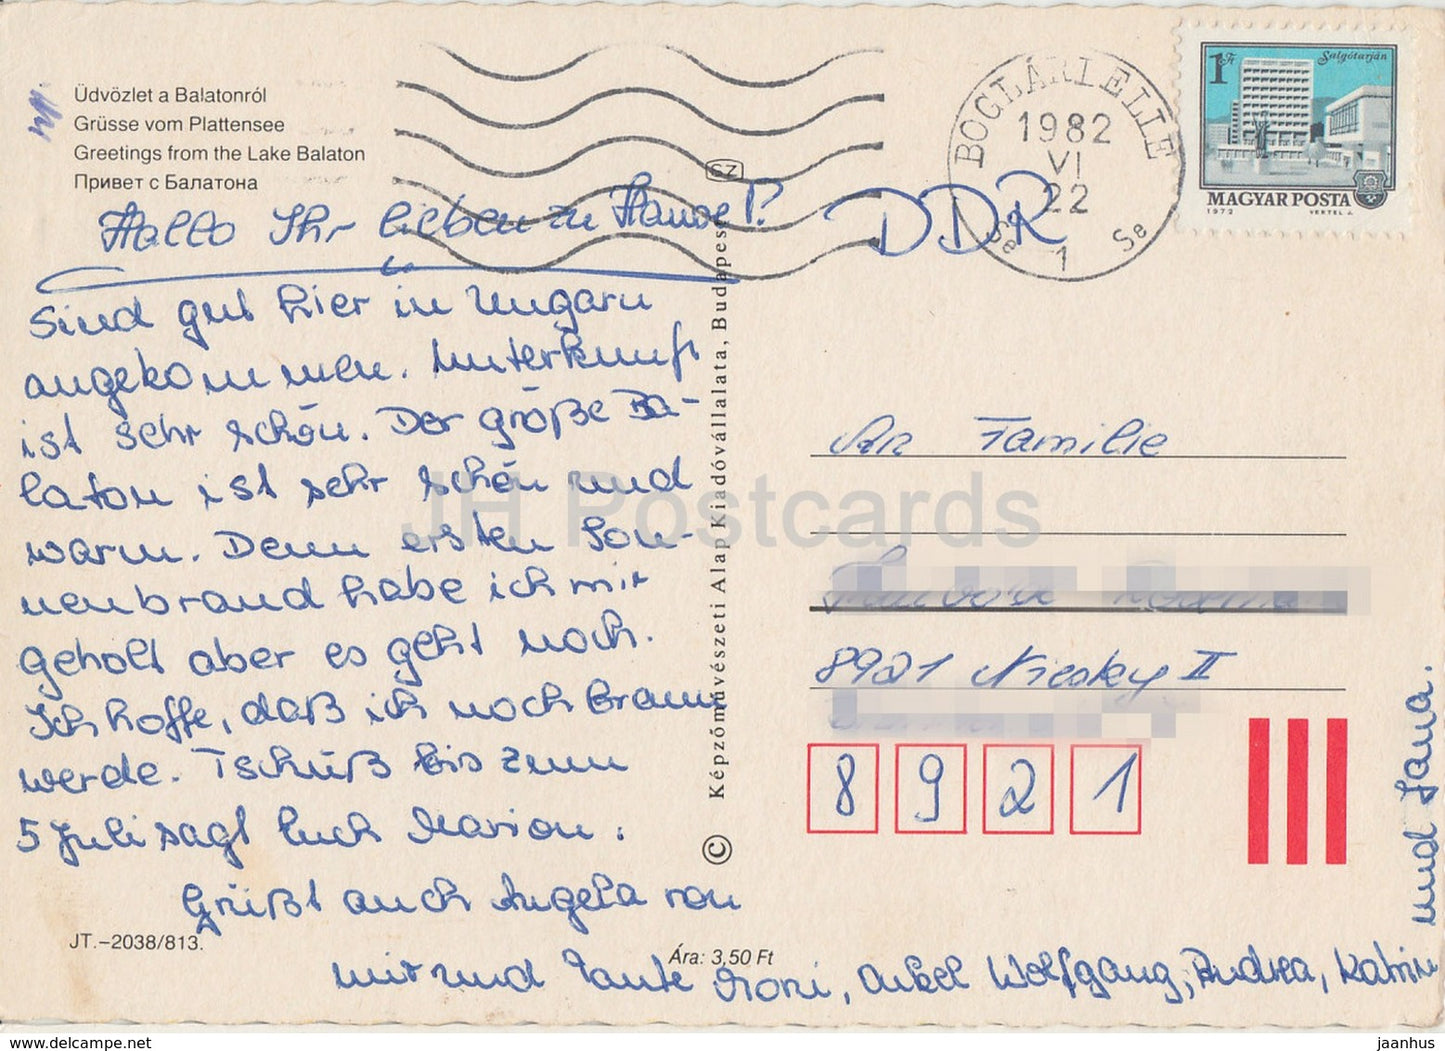 Üdvözlet a Balatonról
Grüsse vom Plattensee
Greetings from the Lake Balaton
Привет с Балатона
BOGLÁRLELLE
1982
VI
22
Se 1 Se
1 Ft
Salgótarján
MAGYAR POSTA
1972 VERTEL J.
SZ
Hallo Ihr lieben zu Hause!
DDR
Sind gut hier in Ungarn
angekommen. Unterkunft
ist sehr schön. Der große Ba-
laton ist sehr schön und
warm. Denn ersten Son-
nenbrand habe ich mir
geholt aber es geht noch.
Ich hoffe, daß ich noch braun
werde. Tschüß bis zum
5 Juli sagt Euch Marion.
Grüßt auch Angela von
mir und Tante Moni, Onkel Wolfgang, Andrea, Katrin
und Jana.
JT.–2038/813.
Ára: 3,50 Ft
© Képzőművészeti Alap Kiadóvállalata, Budapest
An Familie
8921 Niesky II
8 9 2 1
JH Postcards
jaanhus